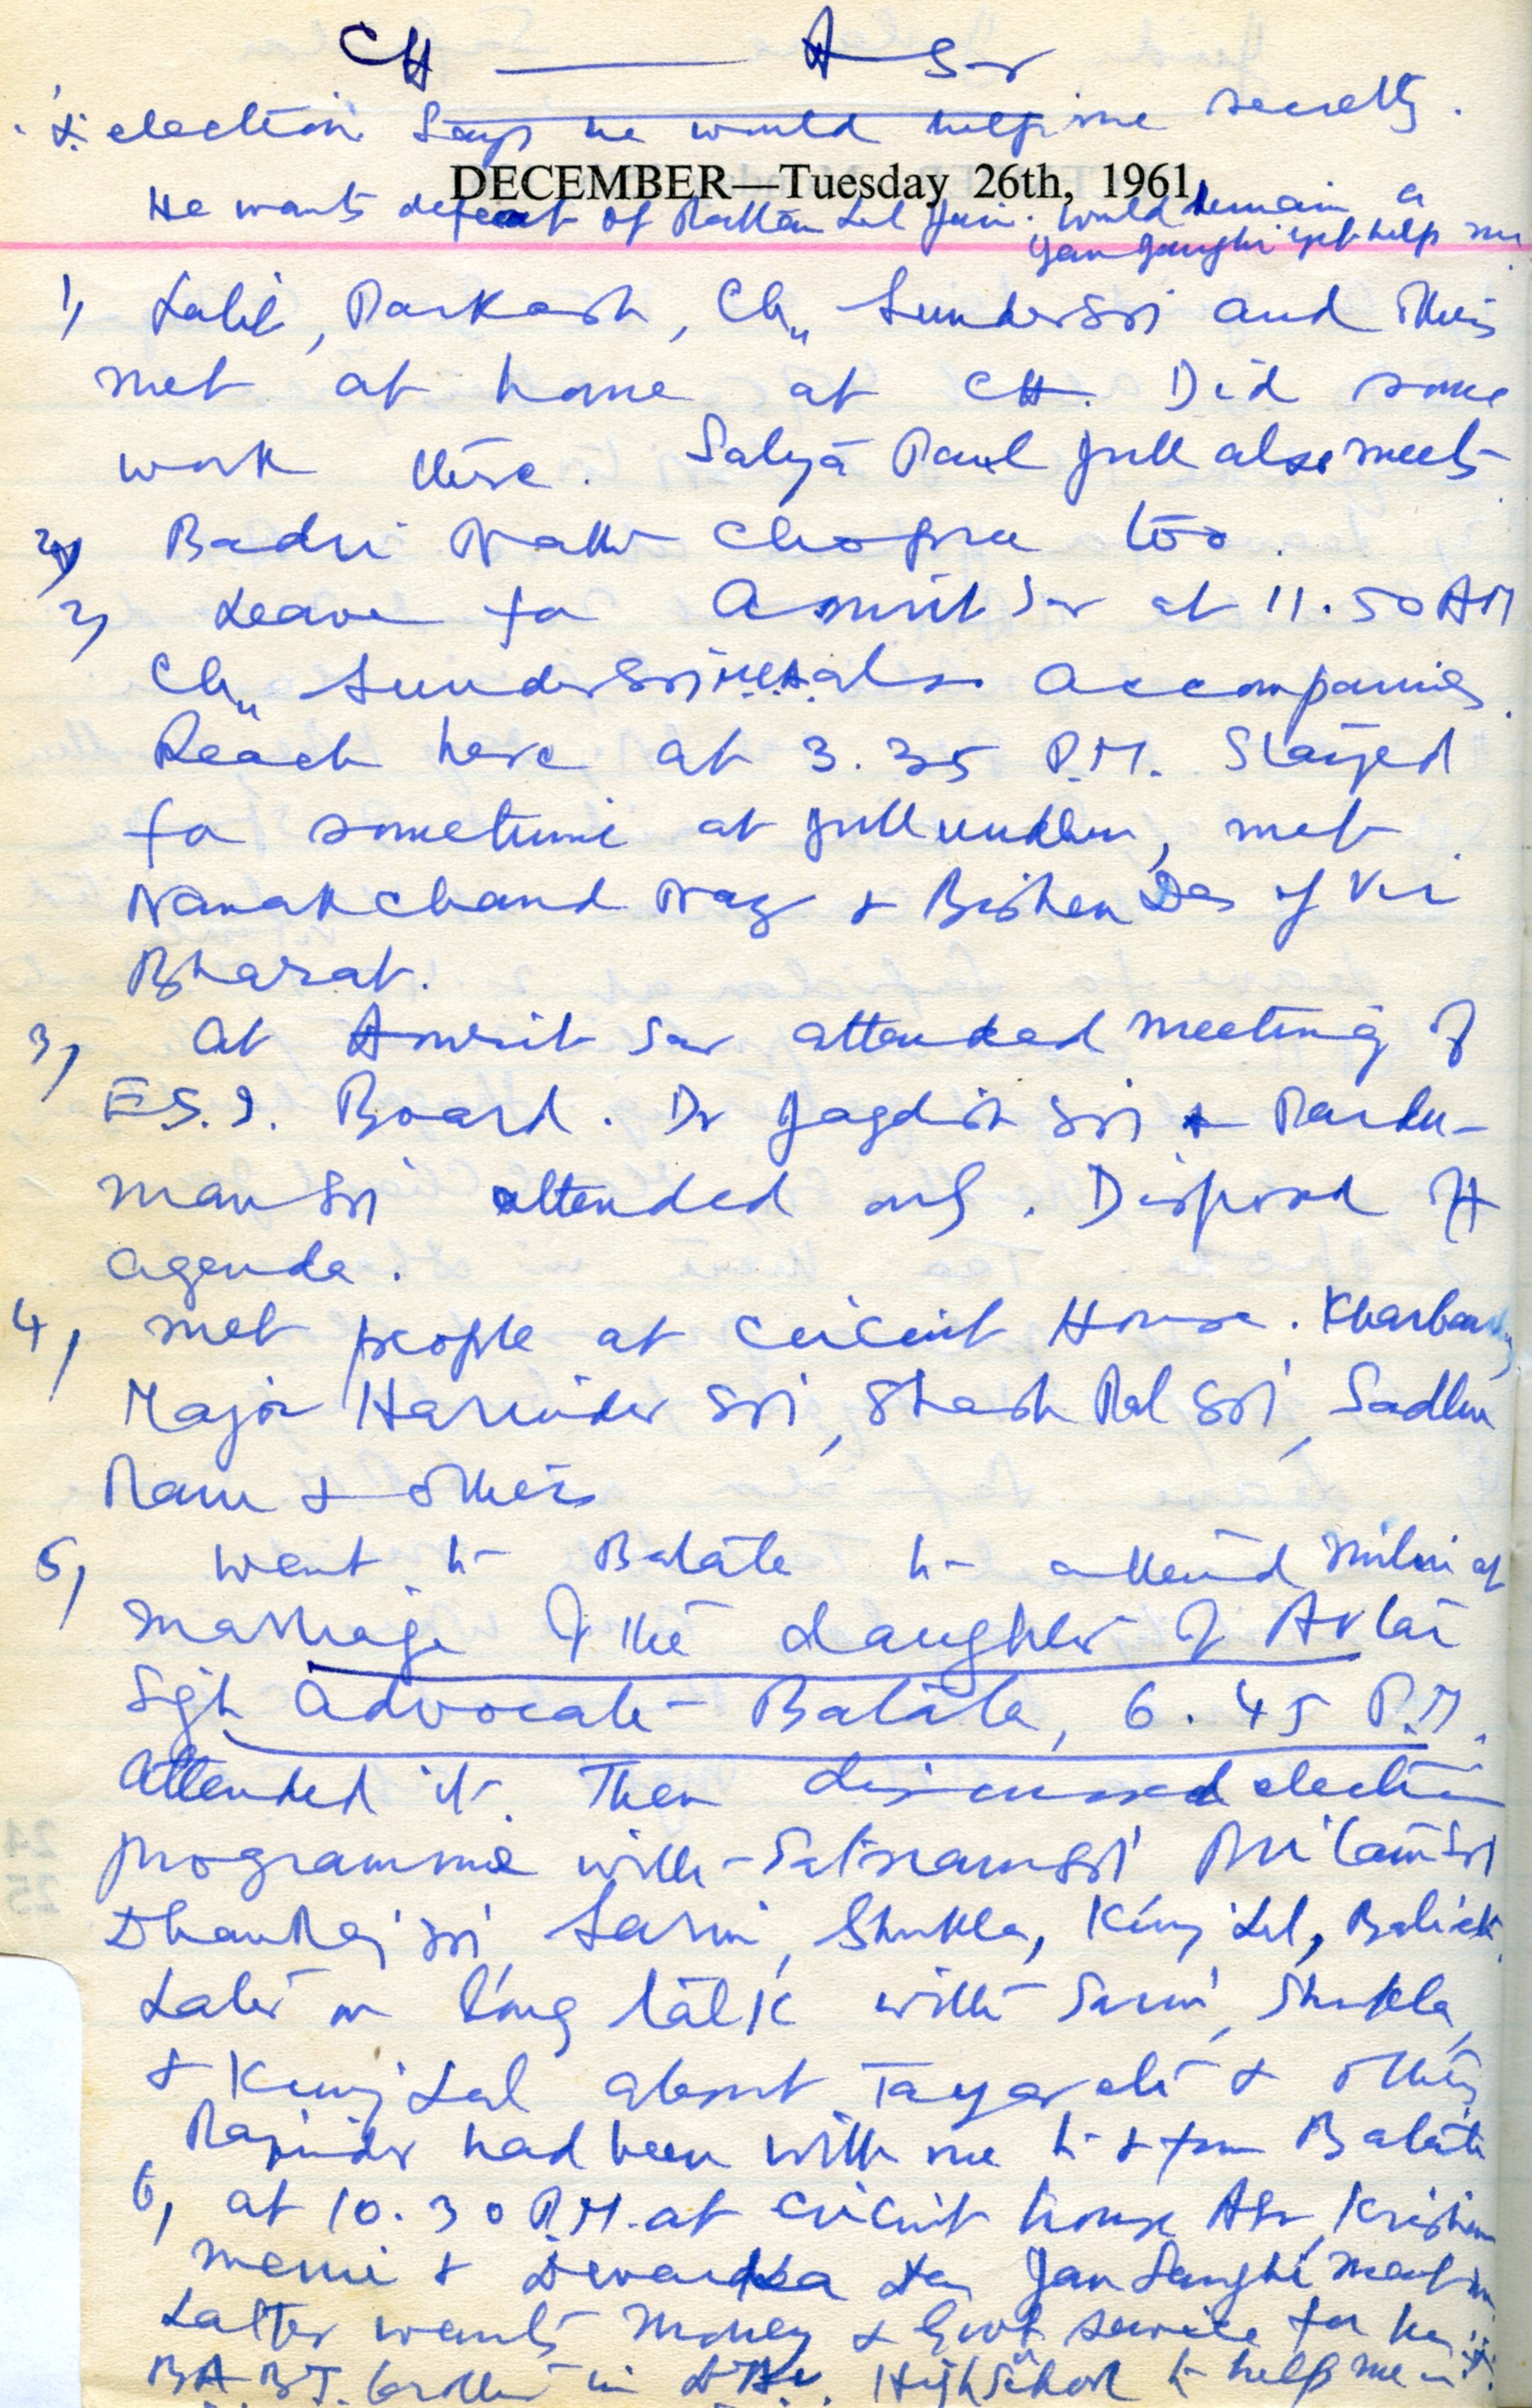 CH — A Sr
election Says he would help me secretly.
DECEMBER—Tuesday 26th, 1961
He wants defeat of Rattan Lal Jain. Would remain a
Jan Sanghi yet help me
1, Lalit, Parkash, Ch" Sunder Sgi and others
met at home at CH. Did some
work there. Satya Paul Gill also meets.
2, Badri Nath Chopra too.
2, Leave for Amrit Sar at 11.50 AM
Ch" Sunder Sgi also accompanies.
Reach here at 3.35 P.M. Stayed
for sometime at Jullundhur, met
Nanak Chand Naz + Bishen Das of Vir
Bharat.
3, At Amrit Sar attended meeting of
E.S.I. Board. Dr Jagdish Sgi + Pardu-
man Sgi attended only. Disposed off
agenda.
4, met people at Circuit House. Kharbanda,
Major Harinder Sgi, Shash Pal Sgi, Sadhu
Ram + others
5, Went to Batala to attend Milni of
marriage of the daughter of Avtar
Sgh Advocate Batala, 6.45 P.M.
Attended it. Then discussed election
programme with Satnam Sgi Pritam Sgi
Dhanraj Sgi Sarin, Shukla, Kunj Lal,
Later on long talk with Sarin, Shukla,
+ Kunj Lal about + others
Rajinder had been with me to + from Batala
6, at 10.30 P.M. at circuit house Asr, Krishen
+ Dwarka Das Jan Sanghi met me.
Latter wants money + Govt service for his
BA BT. brother in High School to help me in